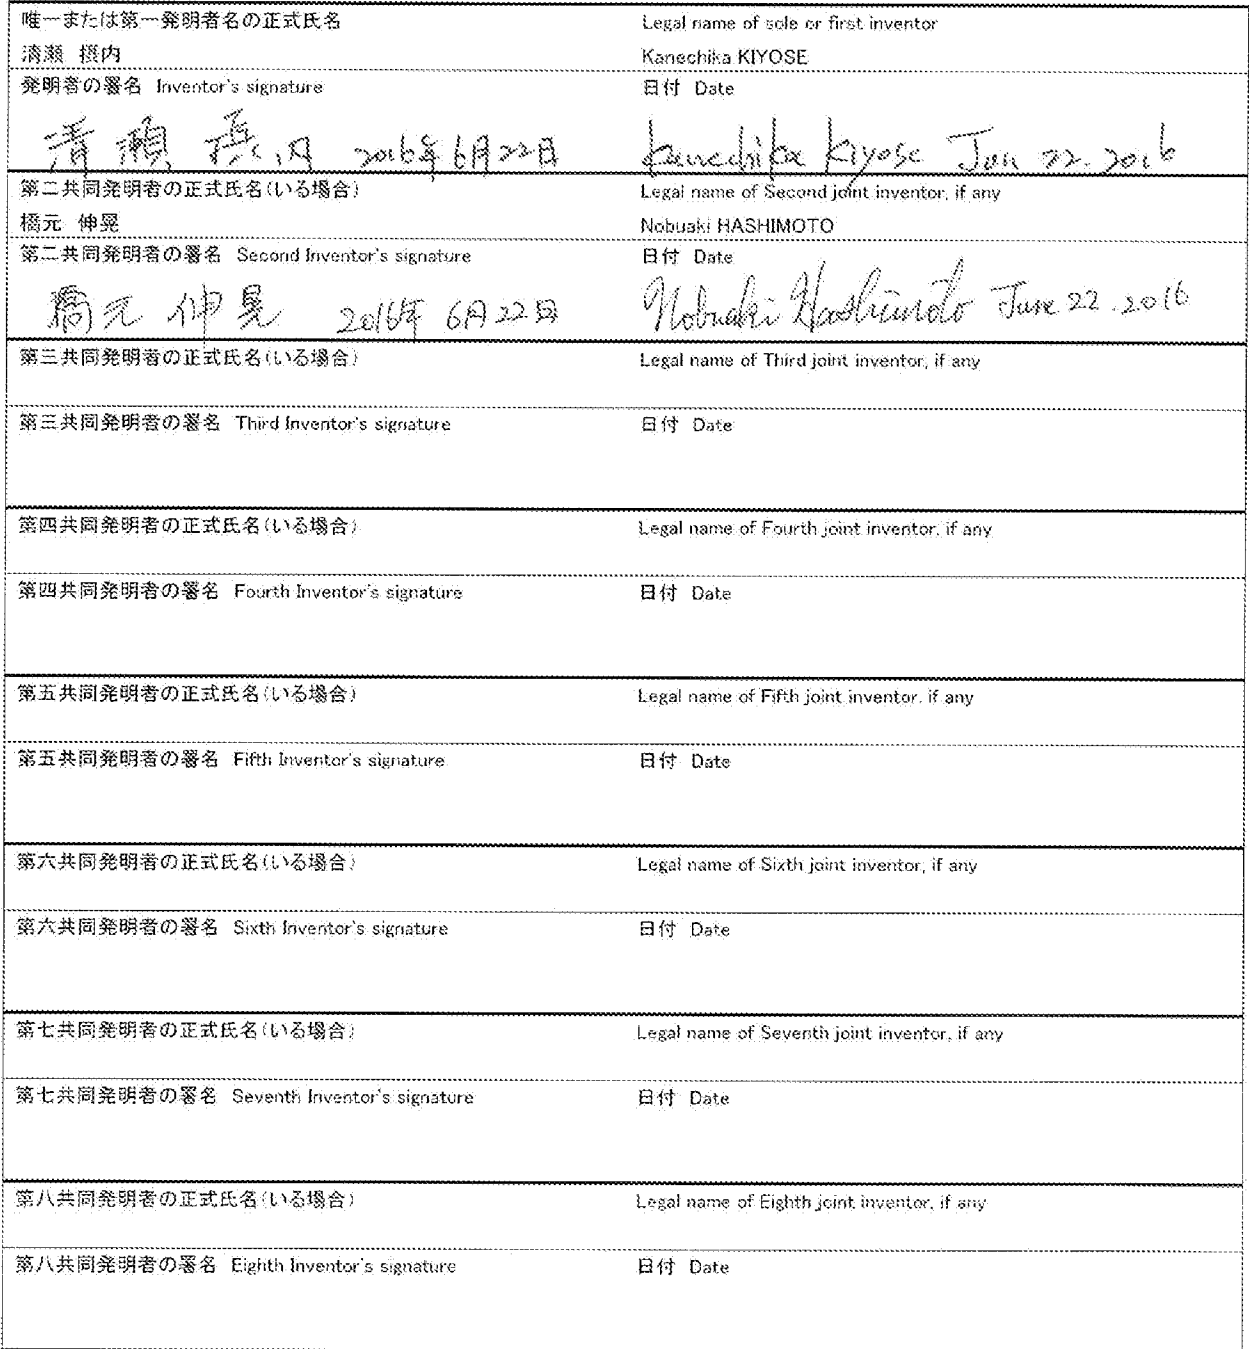 唯一または第一発明者名の正式氏名 Legal name of sole or first inventor
清瀬 摂内 Kanechika KIYOSE
発明者の署名 Inventor's signature 日付 Date
清瀬 摂内 2016年6月22日 Kanechika Kiyose Jun 22. 2016
第二共同発明者の正式氏名(いる場合) Legal name of Second joint inventor, if any
橋元 伸晃 Nobuaki HASHIMOTO
第二共同発明者の署名 Second Inventor's signature 日付 Date
橋元 伸晃 2016年 6月22日 Nobuaki Hashimoto June 22. 2016
第三共同発明者の正式氏名(いる場合) Legal name of Third joint inventor, if any
第三共同発明者の署名 Third Inventor's signature 日付 Date
第四共同発明者の正式氏名(いる場合) Legal name of Fourth joint inventor, if any
第四共同発明者の署名 Fourth Inventor's signature 日付 Date
第五共同発明者の正式氏名(いる場合) Legal name of Fifth joint inventor, if any
第五共同発明者の署名 Fifth Inventor's signature 日付 Date
第六共同発明者の正式氏名(いる場合) Legal name of Sixth joint inventor, if any
第六共同発明者の署名 Sixth Inventor's signature 日付 Date
第七共同発明者の正式氏名(いる場合) Legal name of Seventh joint inventor, if any
第七共同発明者の署名 Seventh Inventor's signature 日付 Date
第八共同発明者の正式氏名(いる場合) Legal name of Eighth joint inventor, if any
第八共同発明者の署名 Eighth Inventor's signature 日付 Date